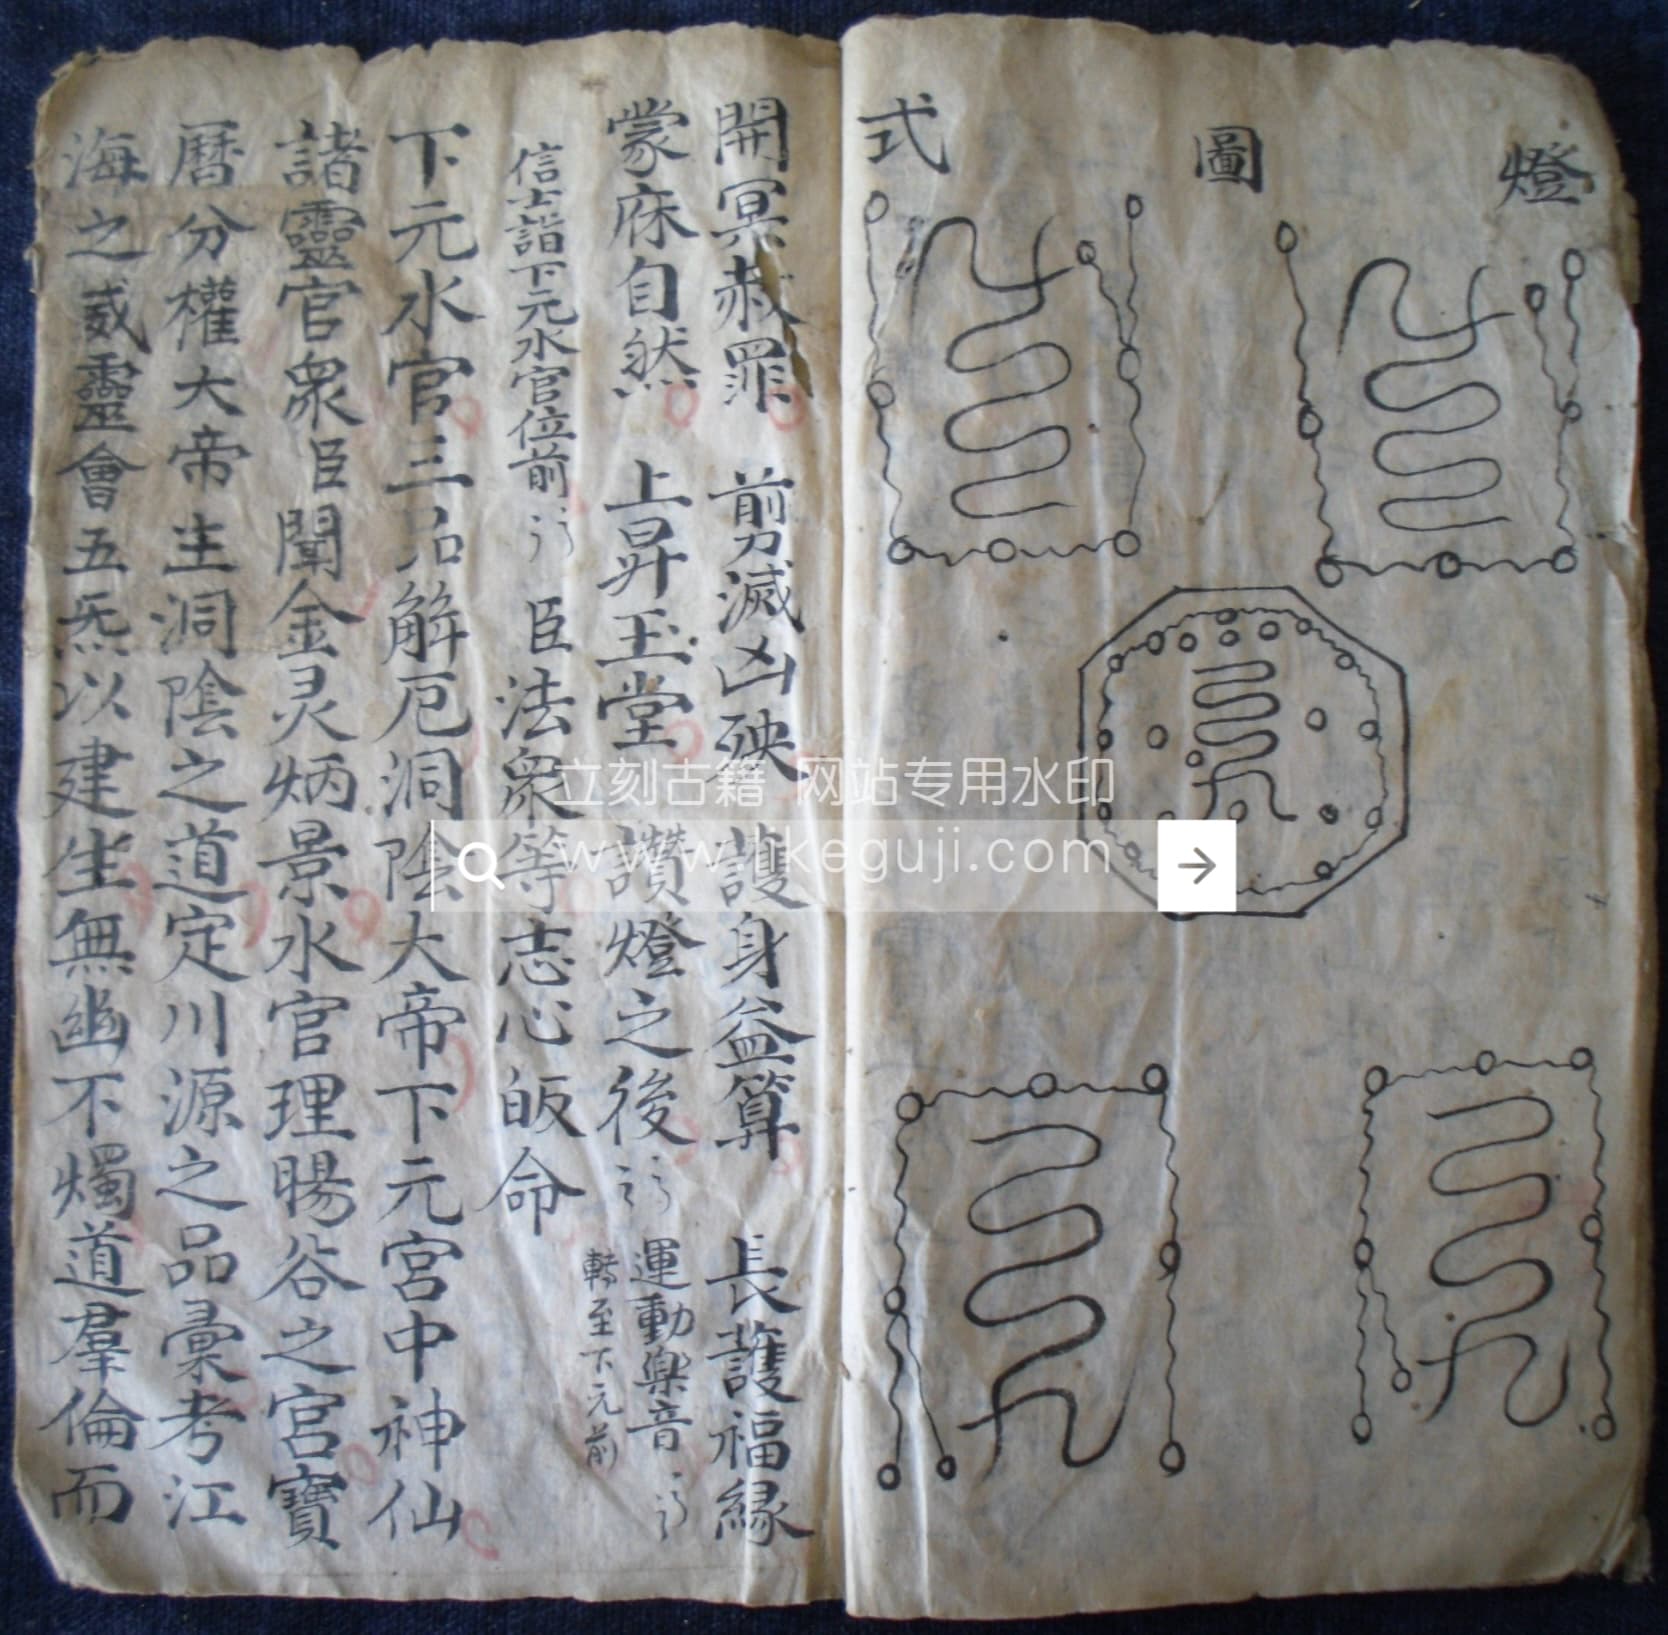 燈圖式
開冥赦罪 剪滅凶殃 護身益算 長護福緣
蒙庥自然 上昇玉堂 讚燈之後 運動樂音
轉至下元前
信士詣下元水官位前 臣法衆等志心皈命
下元水官三品解厄洞陰大帝下元宮中神仙
諸靈官衆臣聞金灵炳景水官理暘谷之宮寶
曆分權大帝主洞陰之道定川源之品彙考江
海之威靈會五炁以建生無幽不燭道羣倫而
立刻古籍 网站专用水印
www.likeguji.com